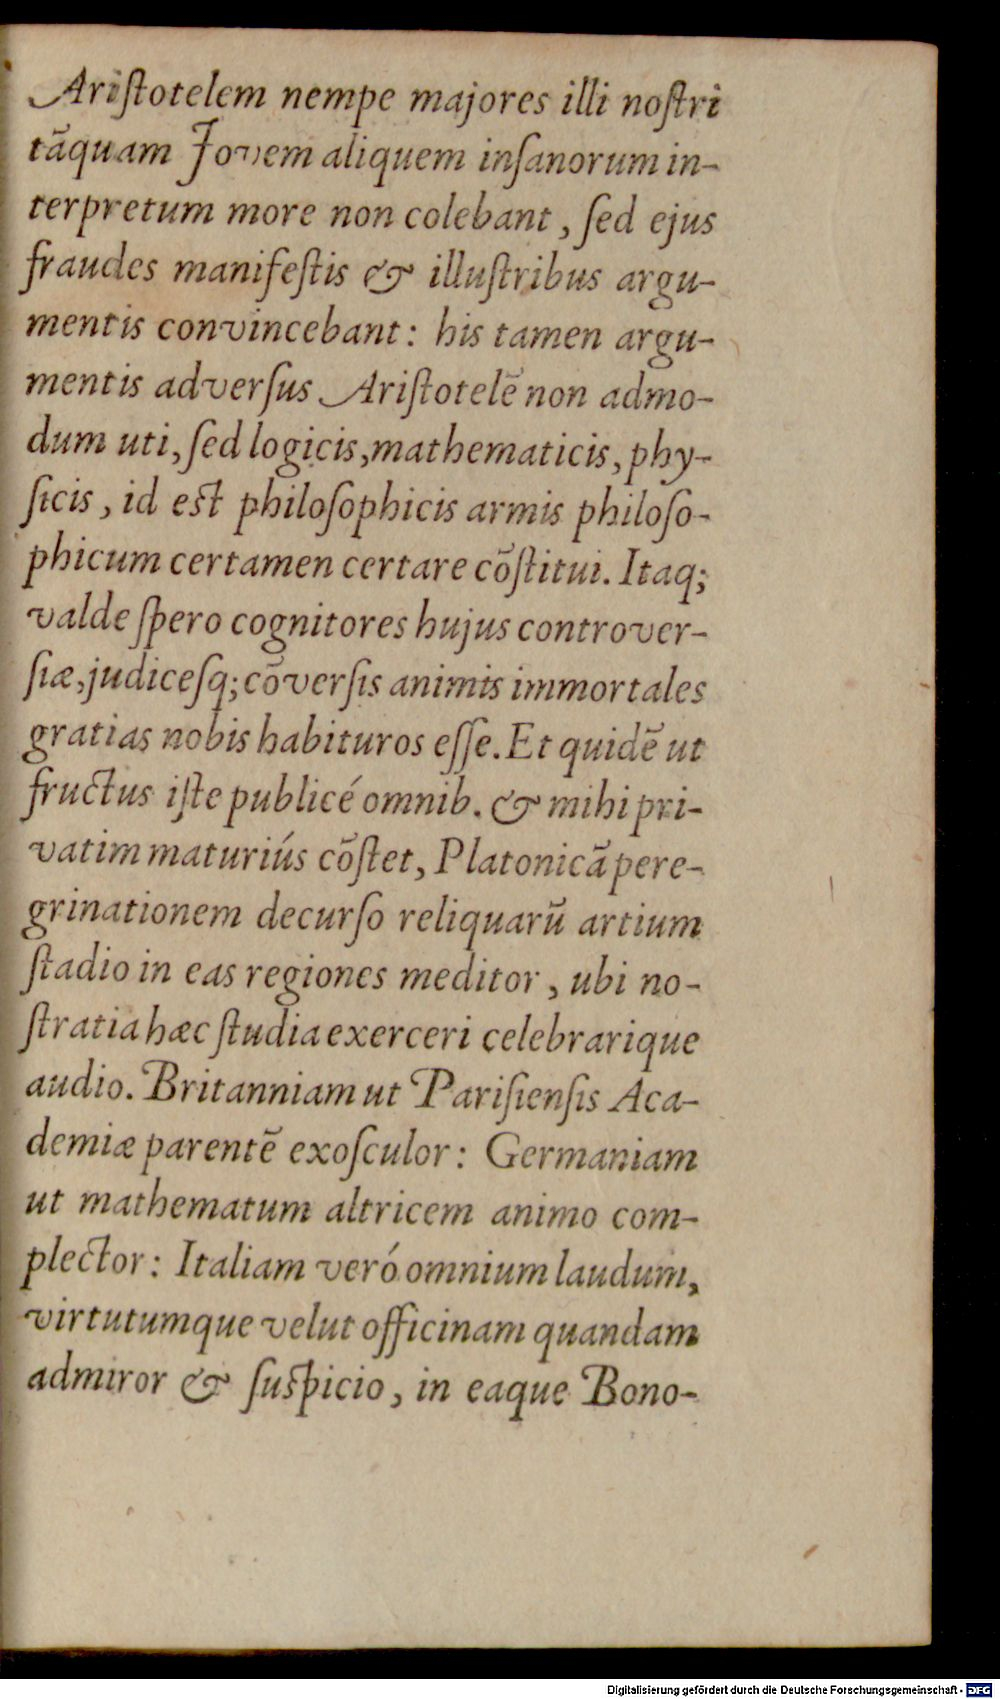 Ariſtotelem nempe majores illi noſtri
tāquam Jovem aliquem inſanorum in-
terpretum more non colebant, ſed ejus
fraudes manifeſtis & illuſtribus argu-
mentis convincebant: his tamen argu-
mentis adverſus Ariſtotelē non admo-
dum uti, ſed logicis, mathematicis, phy-
ſicis, id eſt philoſophicis armis philoſo-
phicum certamen certare cōſtitui. Itaq;
valde ſpero cognitores hujus controver-
ſiæ, judiceſq; cōverſis animis immortales
gratias nobis habituros eſſe. Et quidē ut
fructus iſte publicé omnib. & mihi pri-
vatim maturiús cōſtet, Platonicā pere-
grinationem decurſo reliquarū artium
ſtadio in eas regiones meditor, ubi no-
ſtratia hæc ſtudia exerceri celebrarique
audio. Britanniam ut Pariſienſis Aca-
demiæ parentē exoſculor: Germaniam
ut mathematum altricem animo com-
plector: Italiam veró omnium laudum,
virtutumque velut officinam quandam
admiror & ſuſpicio, in eaque Bono-
Digitalisierung gefördert durch die Deutsche Forschungsgemeinschaft - DFG